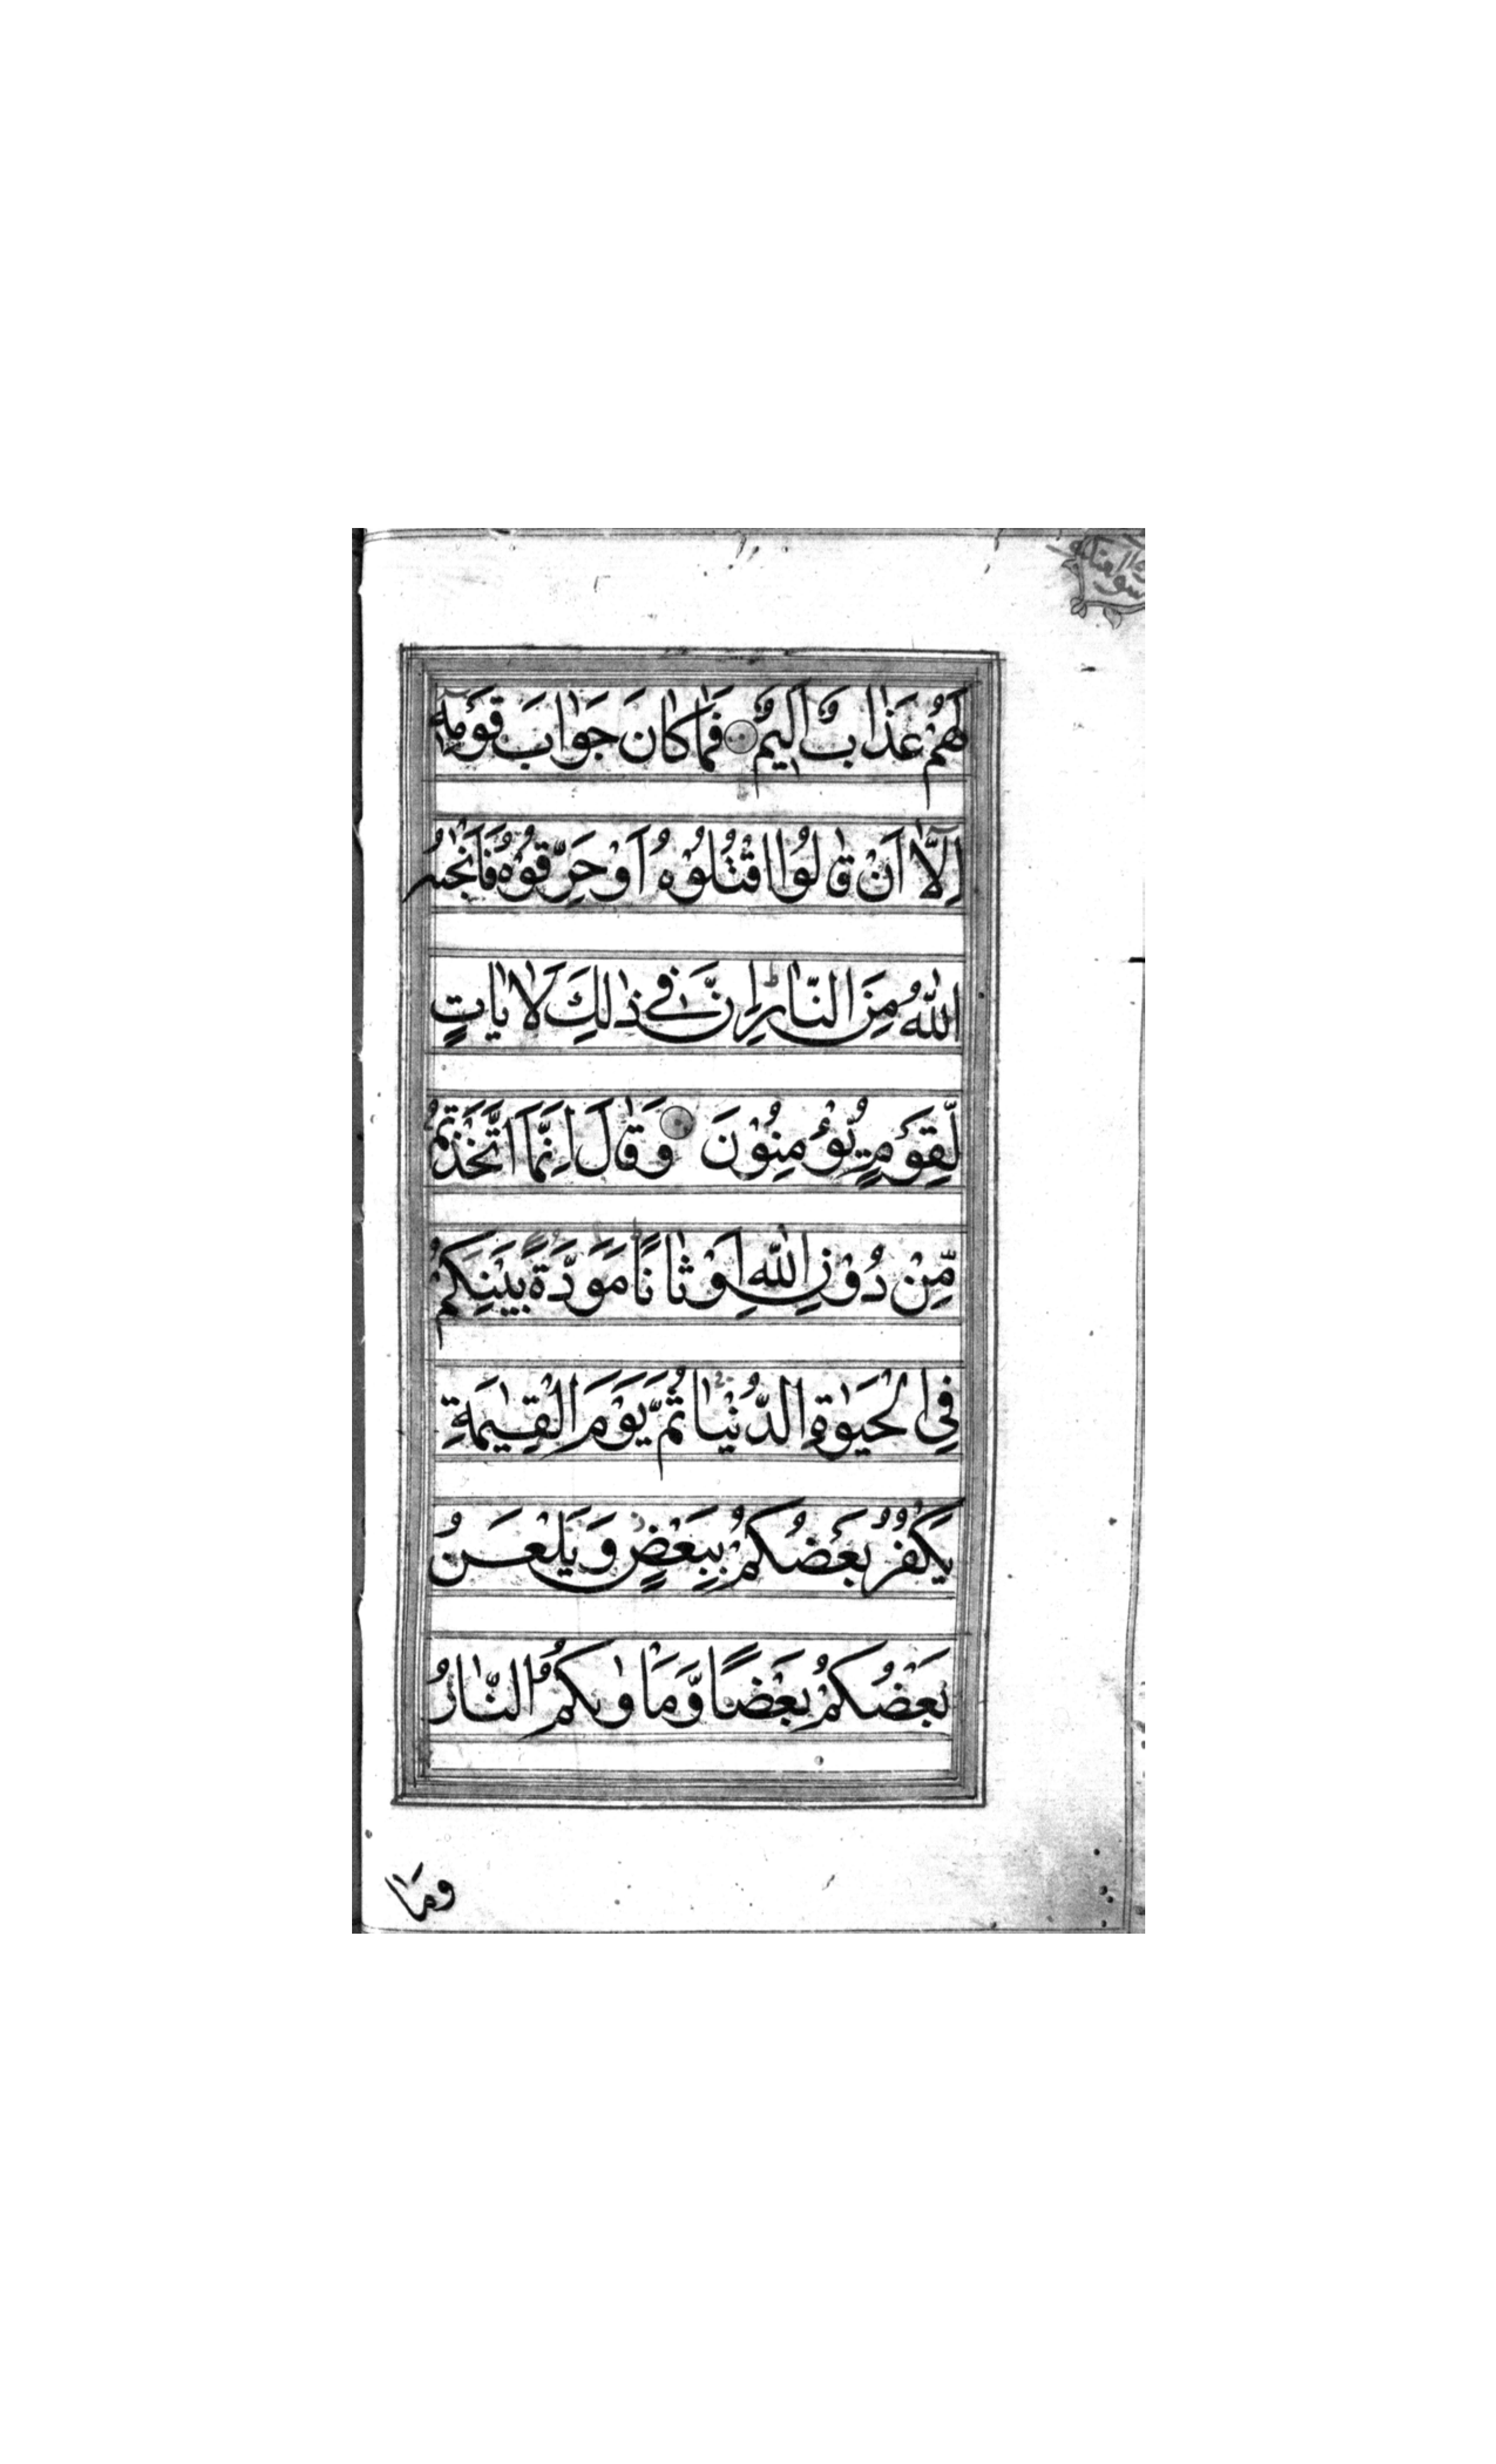 لَهُمْ عَذَابٌ اَلِيْمٌ فَمَا كَانَ جَوَابَ قَوْمِهٖٓ
اِلَّآ اَنْ قَالُوا اقْتُلُوْهُ اَوْ حَرِّقُوْهُ فَاَنْجٰىهُ
اللّٰهُ مِنَ النَّارِ ط اِنَّ فِيْ ذٰلِكَ لَاٰيَاتٍ
لِّقَوْمٍ يُّؤْمِنُوْنَ وَقَالَ اِنَّمَا اتَّخَذْتُمْ
مِّنْ دُوْنِ اللّٰهِ اَوْثَانًا مَوَدَّةً بَيْنِكُمْ
فِي الْحَيٰوةِ الدُّنْيَا ثُمَّ يَوْمَ الْقِيٰمَةِ
يَكْفُرُ بَعْضُكُمْ بِبَعْضٍ وَيَلْعَنُ
بَعْضُكُمْ بَعْضًا وَّمَاْوٰىكُمُ النَّارُ
وَمَا